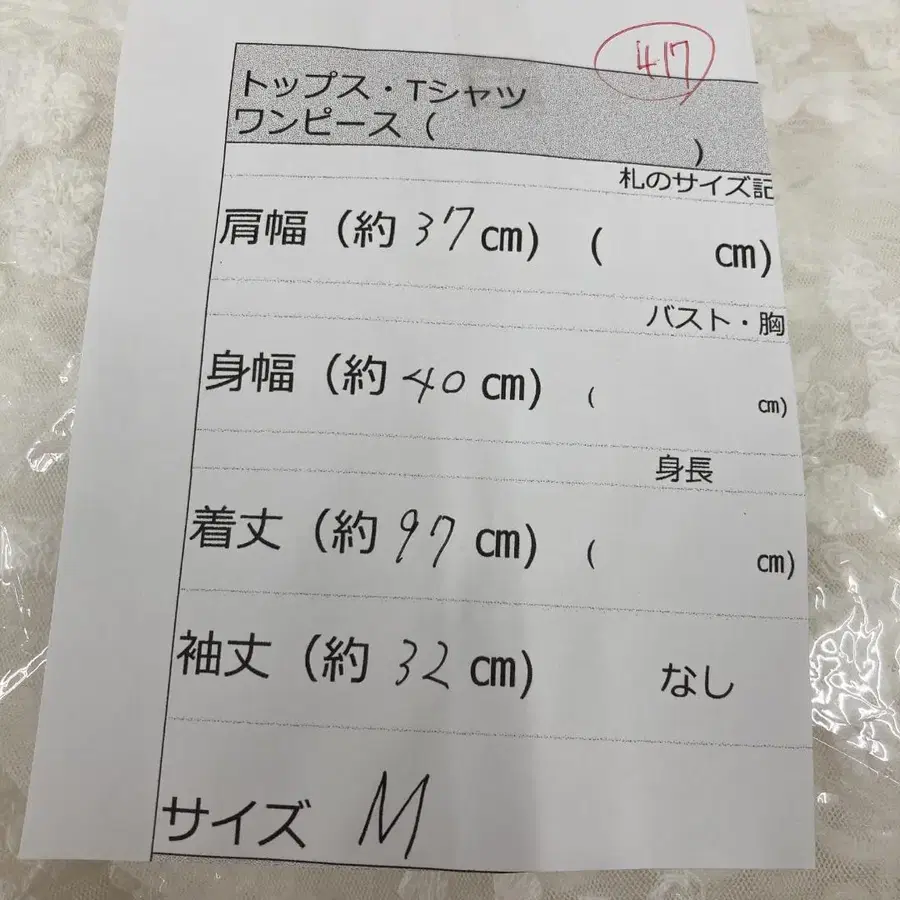 417
トップス・Tシャツ
ワンピース（ ）
札のサイズ記
肩幅（約 37 cm）（ cm）
バスト・胸
身幅（約 40 cm）（ cm）
身長
着丈（約 97 cm）（ cm）
袖丈（約 32 cm） なし
サイズ M